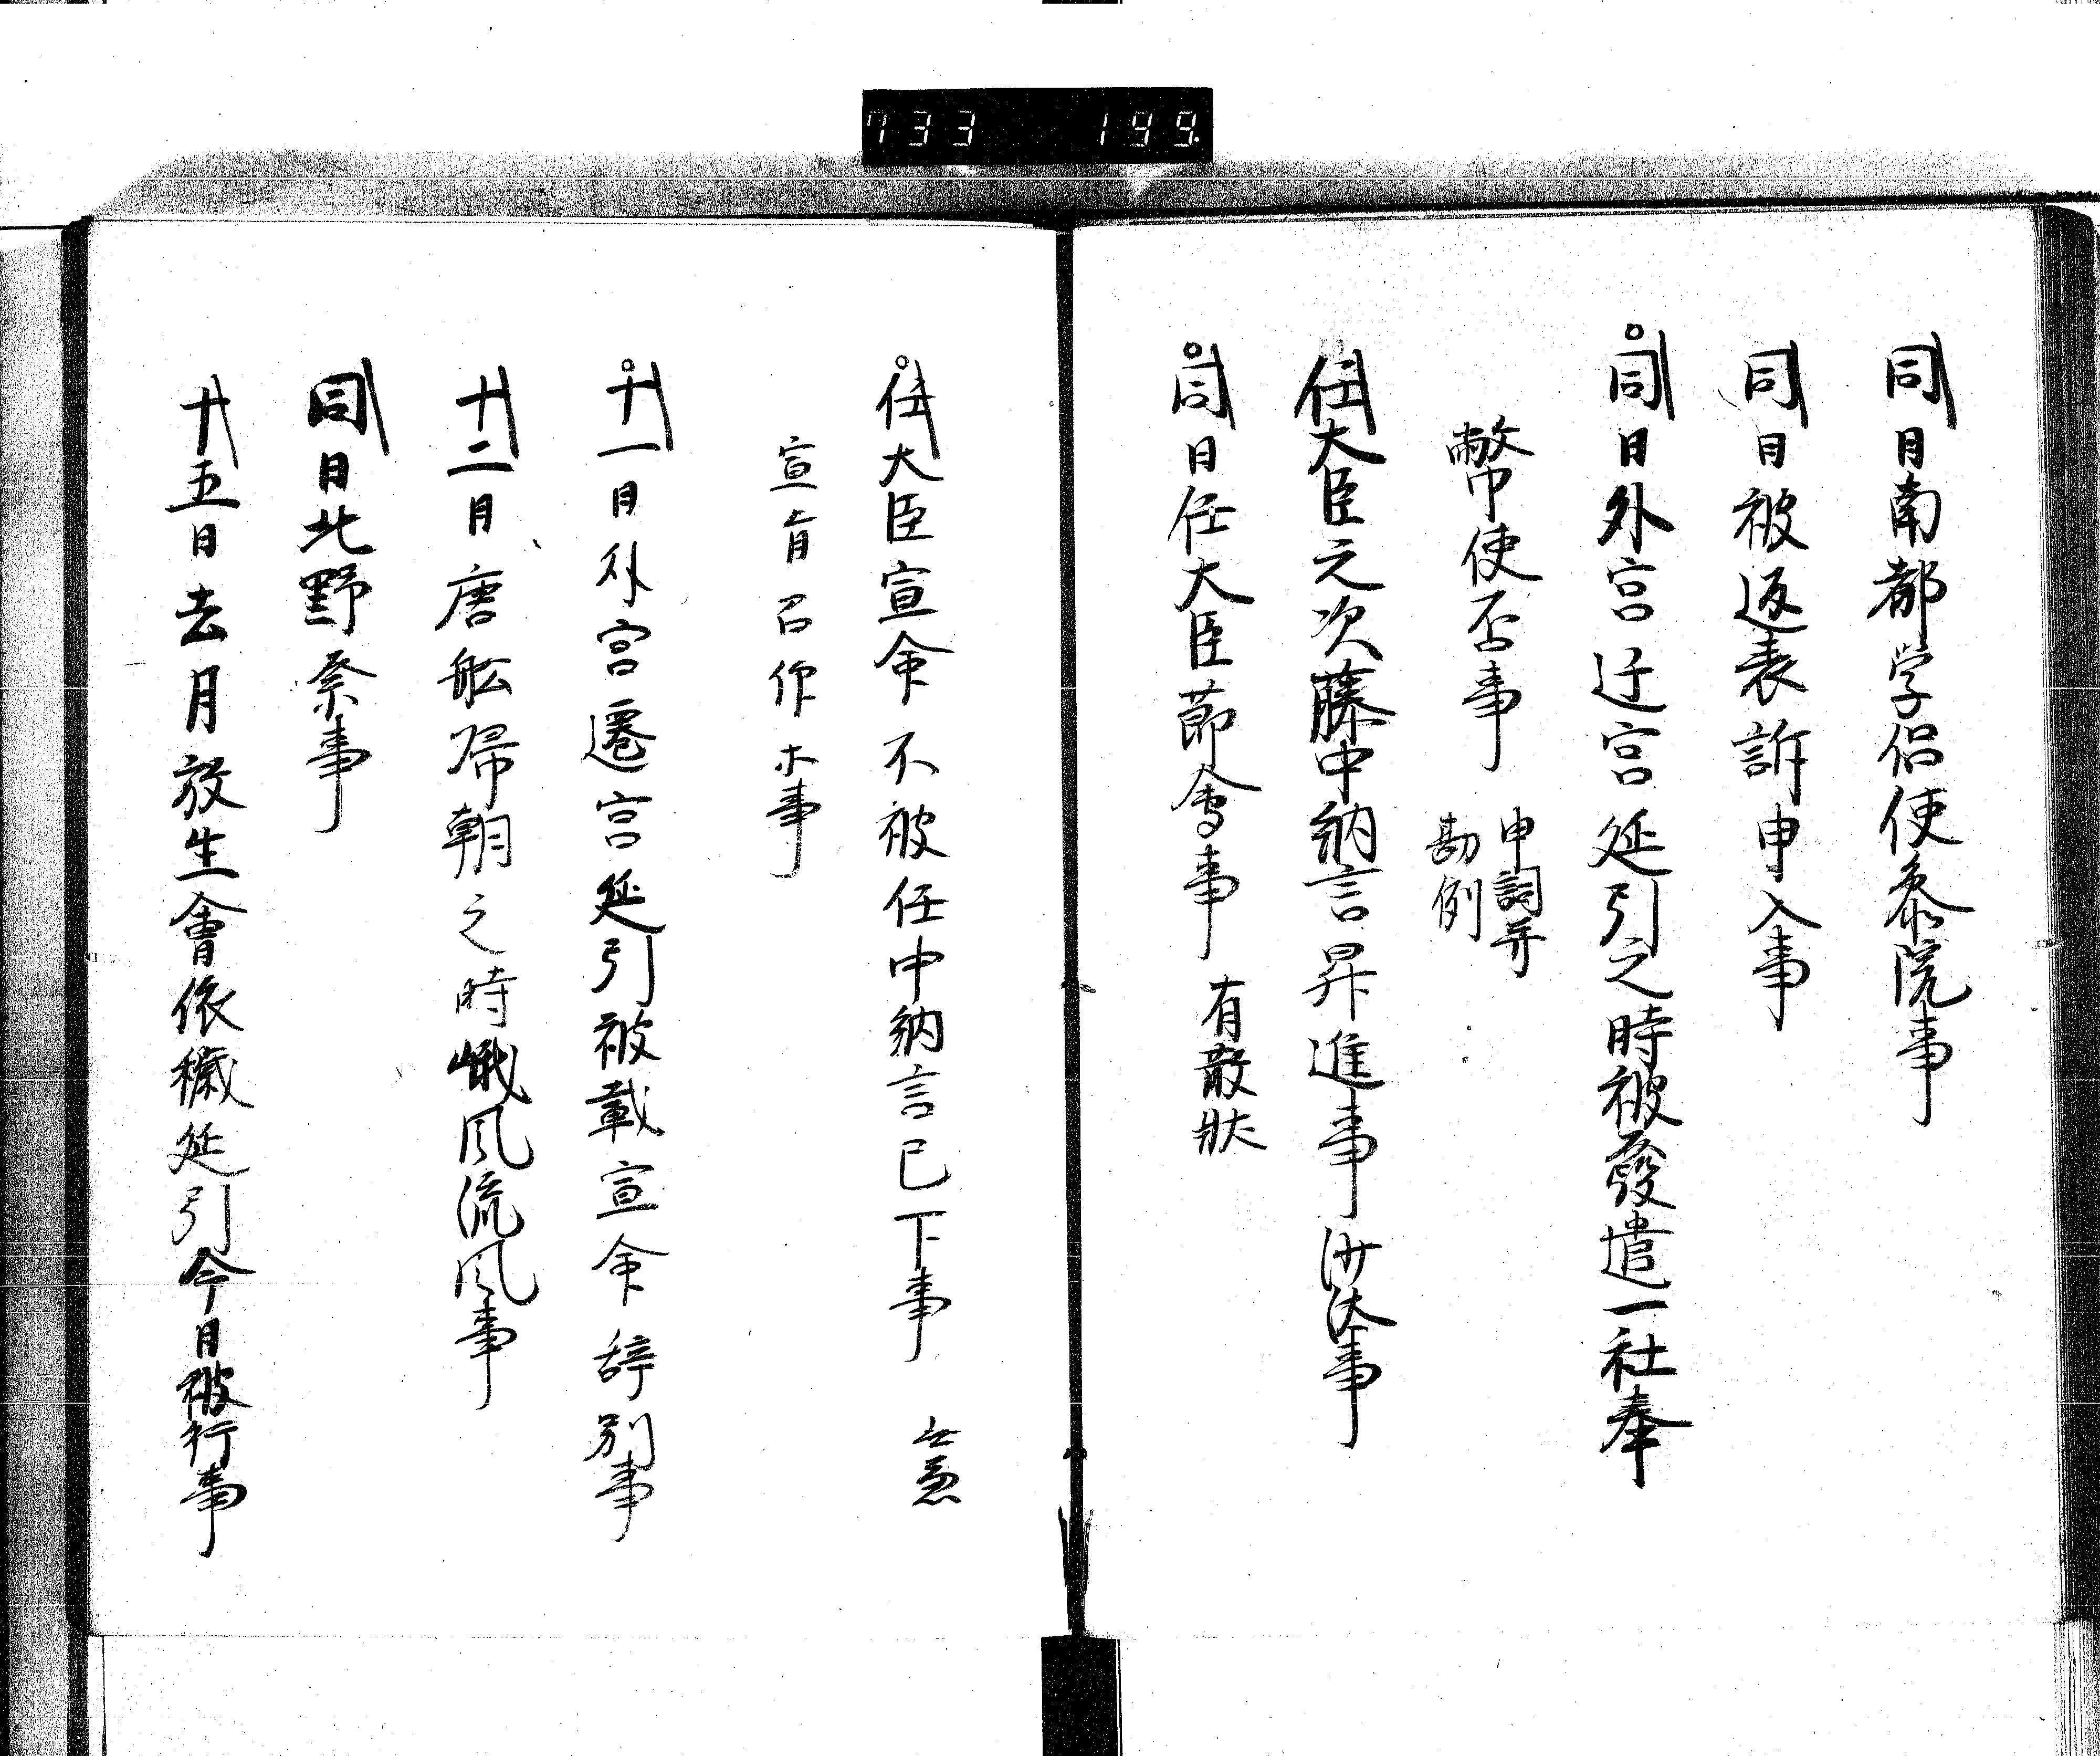 733 199
同日南都学侶使参院事
同日被返表訴申入事
同日外宮迁宮延引之時被發遣一社奉
幣使否事 申詞并勘例
任大臣元次藤中納言昇進事沙汰事
同日任大臣節會事 有散状
任大臣宣命不被任中納言已下事
宣旨召仰木事
十一日外宮遷宮延引被載宣命辞別事
十二月唐舩帰朝之時 風流風事
同日北野祭事
十五日去月放生會依穢延引今日被行事